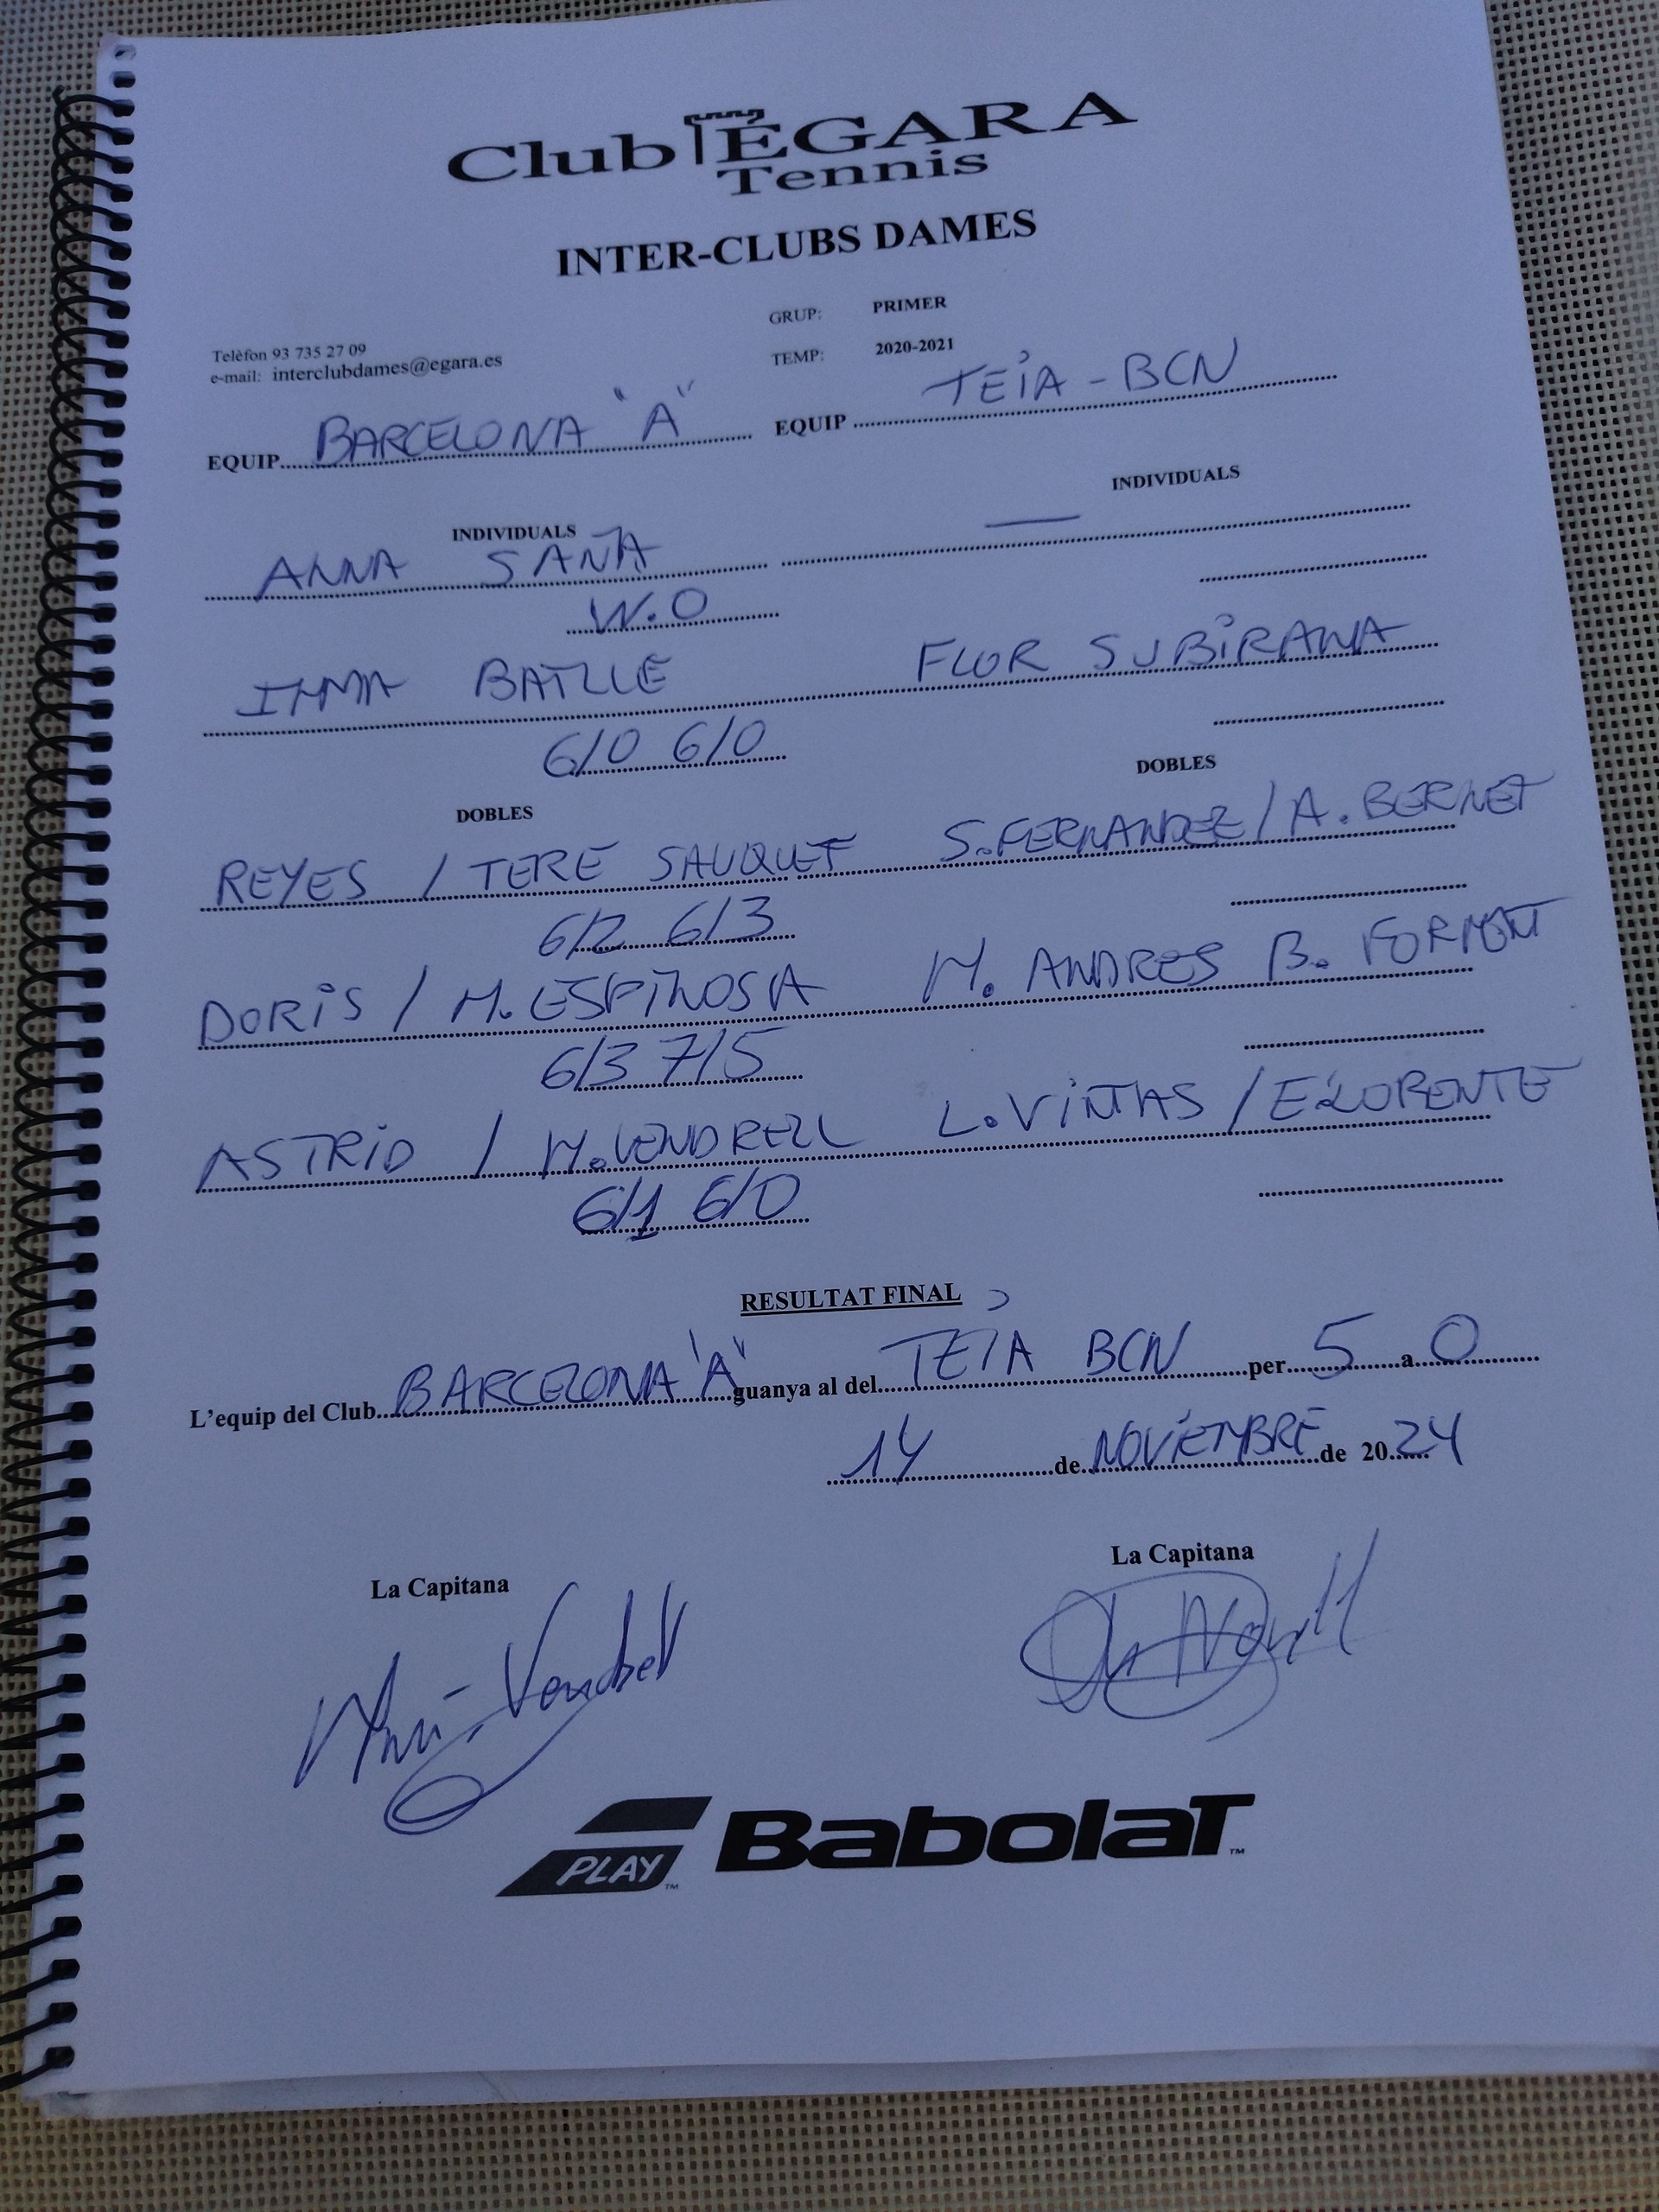 Club EGARA
Tennis
INTER-CLUBS DAMES
GRUP: PRIMER
Telèfon 93 735 27 09
TEMP: 2020-2021
e-mail: interclubdames@egara.es
EQUIP BARCELONA "A" EQUIP TEIA - BCN
INDIVIDUALS INDIVIDUALS
ANNA SAÑA —
W.O
IMMA BATLLE FLOR SUBIRANA
6/0 6/0
DOBLES DOBLES
REYES / TERE SAUQUET S.FERNANDEZ / A. BERNET
6/2 6/3
DORIS / M. ESPINOSA M. ANDRES B. FORMENT
6/3 7/5
ASTRID / M.VENDRELL L. VIÑTAS / E.LLORENTE
6/1 6/0
RESULTAT FINAL
L'equip del Club BARCELONA "A" guanya al del TEIA BCN per 5 a 0
14 de NOVIEMBRE de 2024
La Capitana La Capitana
Vendrell
PLAY™ BabolaT™